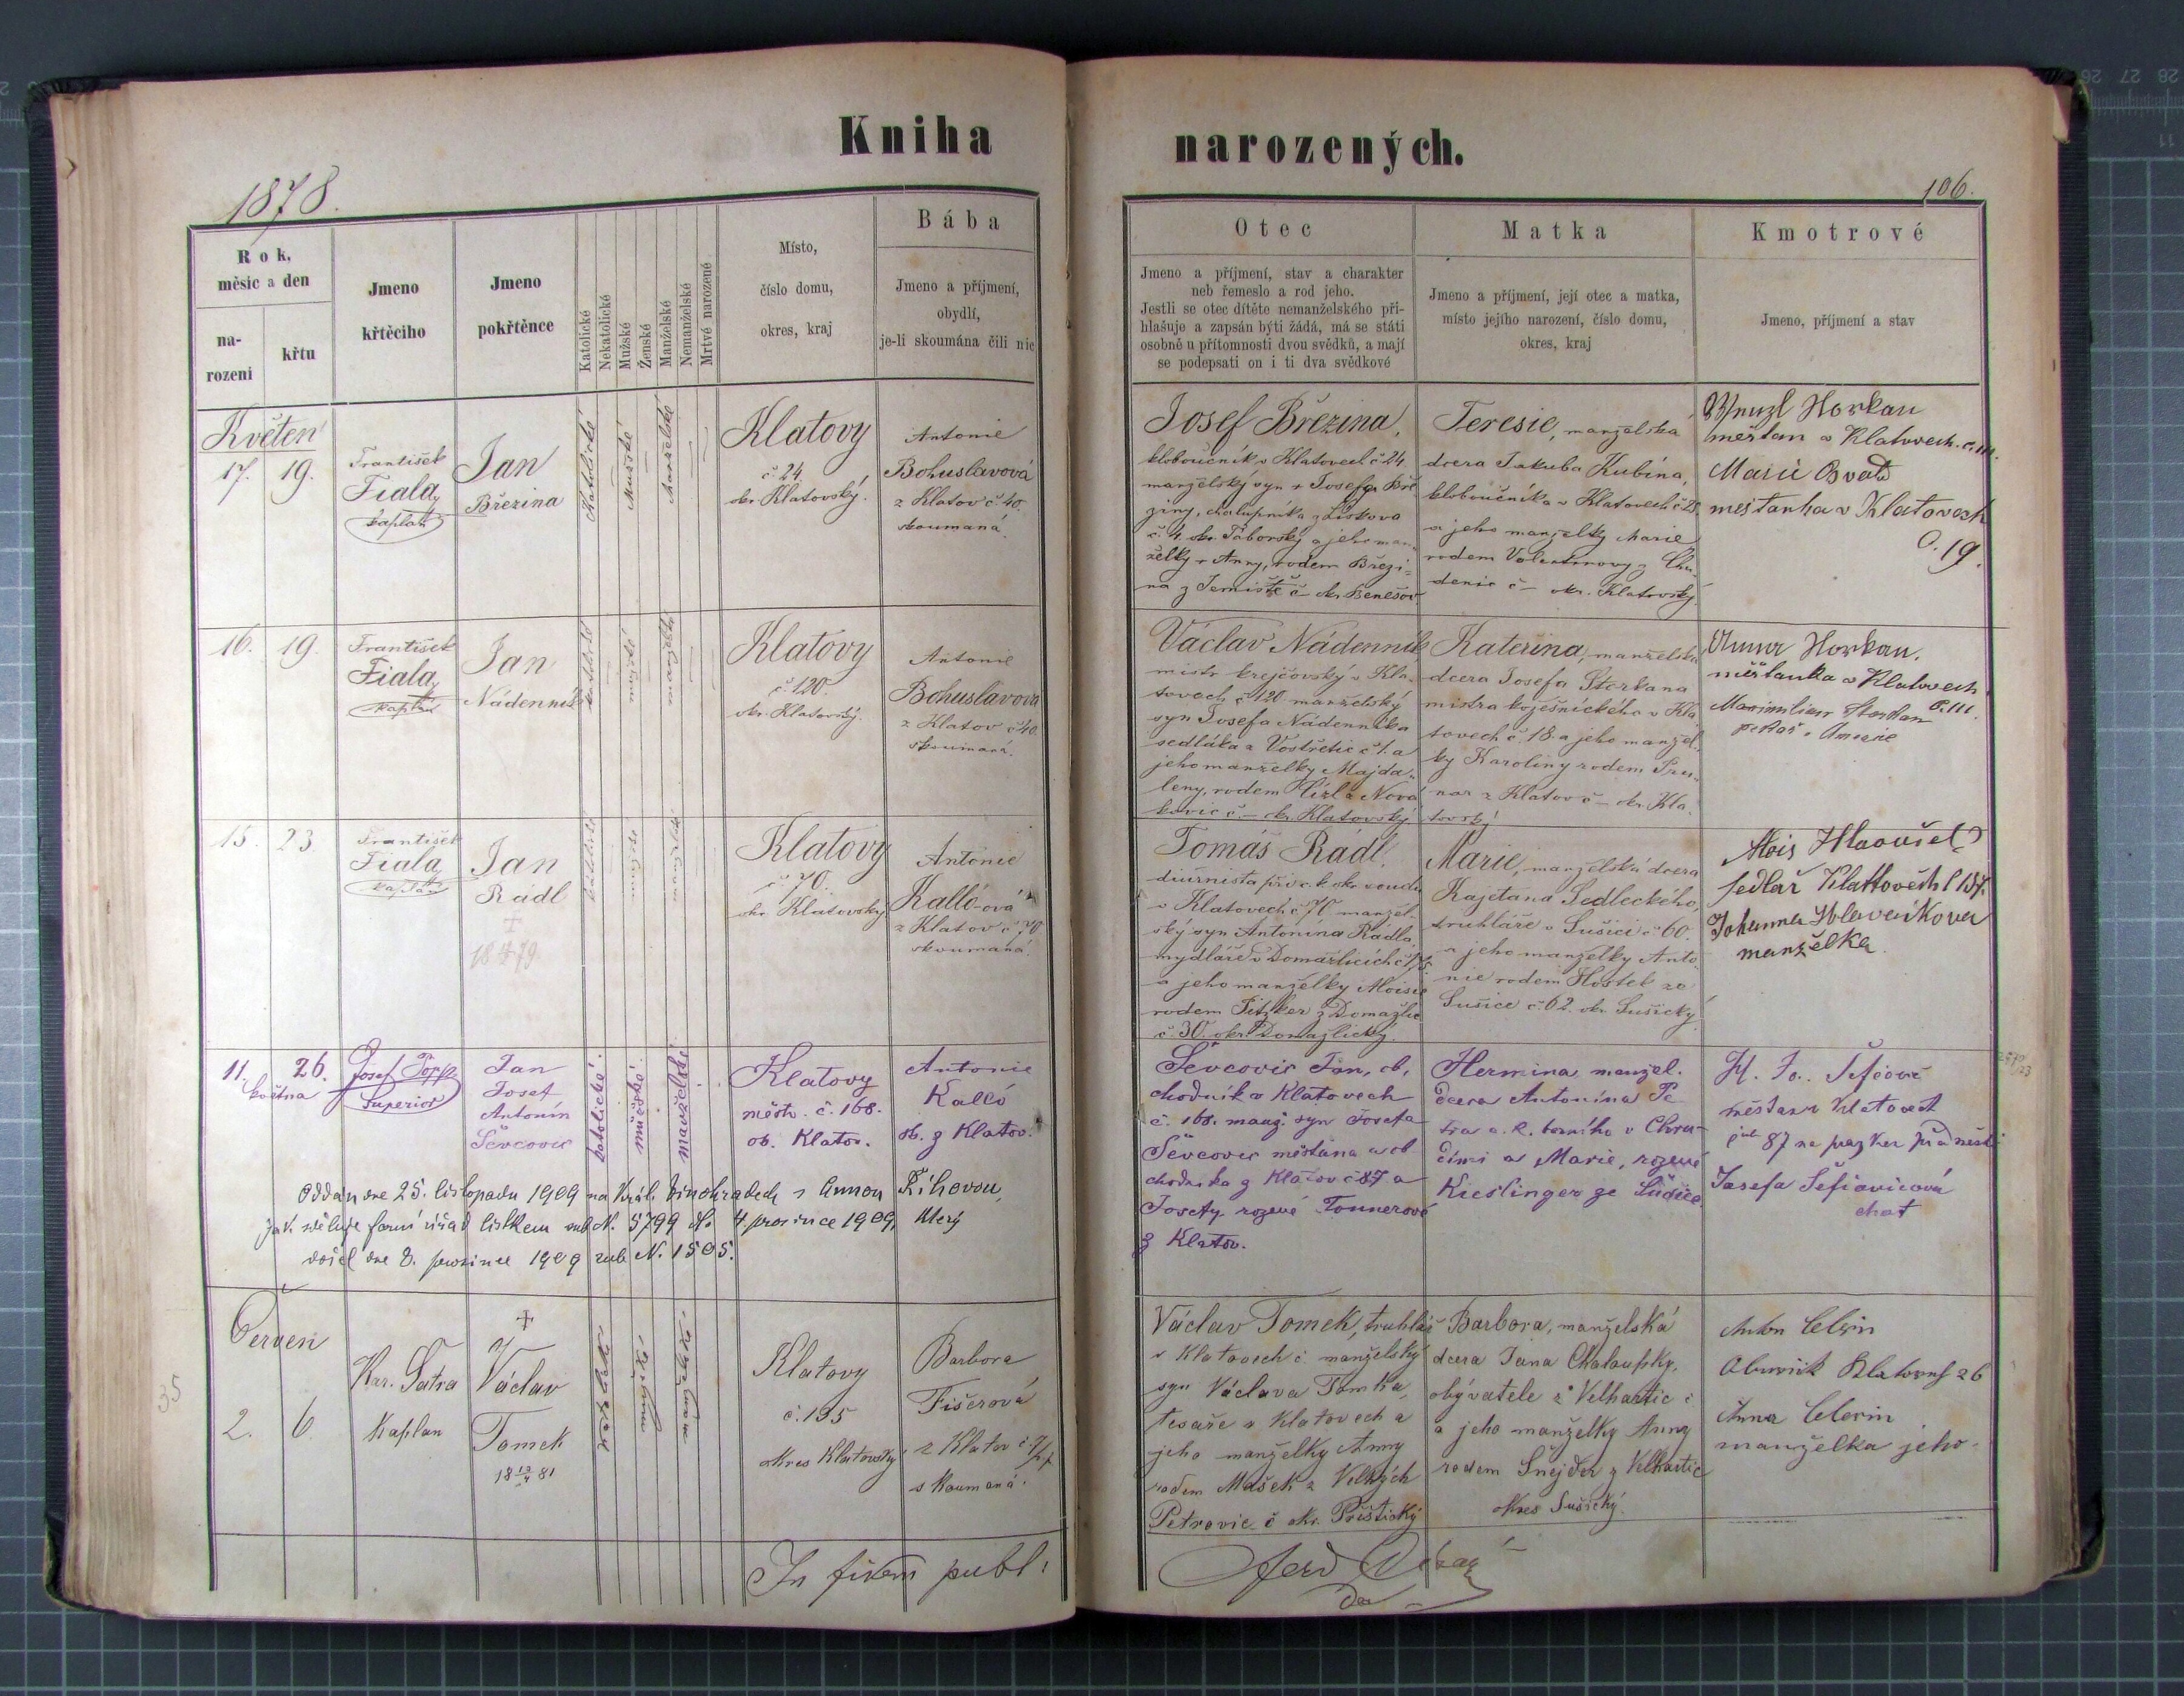 Kniha narozených.
1878.
106.
Rok,
měsíc a den
na-
rození
křtu
Jmeno
křtěcího
Jmeno
pokřtěnce
Katolické
Nekatolické
Mužské
Ženské
Manželské
Nemanželské
Mrtvé narozené
Místo,
číslo domu,
okres, kraj
Bába
Jmeno a příjmení,
obydlí,
je-li skoumána čili nic
Otec
Jmeno a příjmení, stav a charakter
neb řemeslo a rod jeho.
Jestli se otec dítěte nemanželského při-
hlašuje a zapsán býti žádá, má se státi
osobně u přítomnosti dvou svědků, a mají
se podepsati on i ti dva svědkové
Matka
Jmeno a příjmení, její otec a matka,
místo jejího narození, číslo domu,
okres, kraj
Kmotrové
Jmeno, příjmení a stav
Květen
17. 19.
František
Fiala,
kaplan
Jan
Březina
Katolické
Mužské
Manželské
Klatovy
č 24.
okr. Klatovský.
Antonie
Bohuslavová
z Klatov č 40.
skoumaná.
Josef Březina,
kloboučník v Klatovech č 24
manželský syn + Josefa Bře
ziny, chalupníka z Liskova
č. 4. okr. Táborský a jeho man-
želky + Anny, rodem Březi-
na z okr. Benešov
Teresie, manželská
dcera Jakuba Kubína,
kloboučníka v Klatovech č 28
a jeho manželky Marie
rodem z Chu-
denic č – okr. Klatovský.
Horkau
měšťan v Klatovech
Marie
mešťanka v Klatovech
19.
16. 19.
František
Fiala,
kaplan
Jan
Nádenník
katolické
mužské
manželské
Klatovy
č 120.
okr. Klatovský.
Antonie
Bohuslavová
z Klatov č 40.
skoumaná.
Václav Nádenník
mistr krejčovský v Kla-
tovech č 120 manželský
syn Josefa Nádenníka
sedláka z Vostřetic č 1. a
jeho manželky Majda-
leny, rodem z Nová
kovic č – okr. Klatovský.
Kateřina, manželská
dcera Josefa
mistra kožešnického v Kla
tovech č 18. a jeho manžel-
ky Karoliny rodem
nar z Klatov č – okr. Kla
tovský
Anna Horkau.
měšťanka v Klatovech
č. 111.
15. 23.
František
Fiala,
kaplan
Jan
Rádl
katolické
mužské
manželské
Klatovy
č 70.
okr. Klatovský
Antonie
Kalló-ová
z Klatov č 70
skoumaná.
Tomáš Rádl,
diurnista při c. k. okr. soudu
v Klatovech č 70 manžel-
ský syn Antonína Rádla,
mydláře v Domažlicích
a jeho manželky Aloisie
rodem z Domažlic
č 30. okr. Domažlický.
Marie, manželská dcera
Kajetána Sedleckého,
truhláře v Sušici č 60.
a jeho manželky Anto
nie rodem Hostek ze
Sušice č. 62. okr. Sušický
Alois
sedlař
Johanna Hlavačkova
manželka
11. 26.
května
Josef
Superior
Jan
Josef
Antonín
Ševcovic
katolické.
mužské.
manželské.
Klatovy
měst. č. 168.
ob. Klatov.
Antonie
Kalló
ob. z Klatov.
Ševcovic Jan, ob,
chodník v Klatovech
č. 168. manž. syn Josefa
Ševcovic měšťana a ob-
chodníka z Klatov č 87 a
Josefy rozené Tonnerové
z Klatov.
Hermina manžel.
dcera Antonína Pe
tra c. k. v Chru-
dimi a Marie, rozené
Kieslinger ze Sušice.
Josefa
choť
Oddán dne 25. listopadu 1909 na Král. Vinohradech s Annou Říhovou,
jak sděluje farní úřad lístkem sub N. 5799 4. prosince 1909, který
došel dne 8. prosince 1909 sub N. 1505.
Červen
2. 6.
Kar. Satra
Kaplan
Václav
Tomek
Klatovy
č. 135
okres Klatovský
Barbora
Fišerová
z Klatov
skoumaná.
Václav Tomek, truhlář
v Klatovech č manželský
syn Václava Tomka,
tesaře z Klatovech a
jeho manželky Anny
rodem Mašek z Velkých
Petrovic č okr. Přeštický
Barbora, manželská
dcera Jana Chaloupky,
obyvatele z Velhartic č
a jeho manželky Anny
rodem Šnejdr z Velhartic
okres Sušický.
Anton
Anna
manželka jeho.
35
In fidem publ: